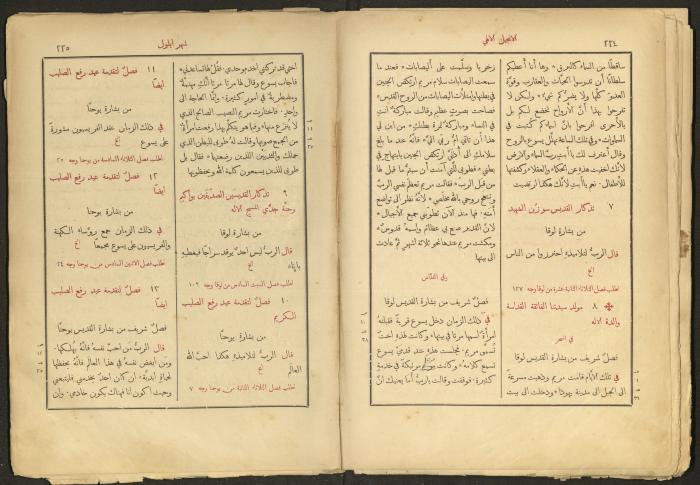 ٢٢٤
الانجيل الالهي
ساقطًا من السماء كالبرق * وها أنا أعطيكم
سلطانًا أن تدوسوا الحيّات والعقارب وقوّة
العدو كلّها ولا يضرّكم شيءٌ * ولكن لا
تفرحوا بهذا أنّ الأرواح تخضع لكم بل
بالأحرى افرحوا بأنّ اسماءكم كتبت في
السماوات * وفي تلك الساعة تهلّل يسوع بالروح
وقال أعترف لك يا أبتِ ربّ السماء والارض
لأنك اخفيت هذه عن الحكماء والعقلاء وكشفتها
للأطفال. نعم يا أبتِ لأنك هكذا ارتضيت
٧ تذكار القديس سوزن الشهيد
من بشارة لوقا
قال الربّ لتلاميذهِ احترزوا من الناس
الخ
اطلب فصل الثلاثاء الثانية عشرة من لوقا وجه ١٢٧
٨ مولد سيدتنا الفائقة القداسة
والدة الاله
في السحر
فصلٌ شريف من بشارة القديس لوقا
في تلك الأيّام قامت مريم وذهبت مسرعةً
الى الجبل الى مدينة يهوذا * ودخلت الى بيت
زخريا وسلّمت على أليصابات * فعند ما
سمعت اليصابات سلام مريم ارتكض الجنين
في بطنها وامتلأت اليصابات من الروح القدس *
فصاحت بصوتٍ عظيمٍ وقالت مباركةٌ انتِ
في النساء ومباركةٌ ثمرة بطنكِ * من اين لي
هذا أن تأتي امّ ربّي اليّ * فانّه عند ما بلغ
سلامكِ الى أذنيّ ارتكض الجنين بابتهاج في
بطني * فطوبى للتي آمنت أن سيتمّ ما قيل لها
من قبل الربّ * فقالت مريم تعظّم نفسي الربّ
وتبتهج روحي بالله مخلّصي * لانّه نظر الى تواضع
أمته. فها منذ الآن تطوّبني جميع الأجيال *
لانّ القدير صنع بي عظائم واسمه قدّوسٌ *
ومكثت مريم عندها نحو ثلاثة اشهرٍ ثمّ عادت
الى بيتها
وفي القدّاس
فصلٌ شريف من بشارة القديس لوقا
في ذلك الزمان دخل يسوع قريةً فقبلتهُ
امرأةٌ اسمها مرتا في بيتها * وكانت لهذه اختٌ
تسمّى مريم. فجلست هذه عند قدمي يسوع
تسمع كلامهُ * وكانت مرتا مرتبكة في خدمةٍ
كثيرة. فوقفت وقالت يا ربّ أما يعنيك أنّ
شهر ايلول
٢٢٥
اختي قد تركتني اخدم وحدي. فقل لها تساعدني *
فاجاب يسوع وقال لها مرتا مرتا انّكِ مهتمّةٌ
ومضطربةٌ في امورٍ كثيرة. وإنّا الحاجة الى
واحدٍ. فاختارت مريم النصيب الصالح الذي
لا يُنزع منها * وفيما هو يتكلّم بهذا رفعت امرأةٌ
من الجمع صوتها وقالت لهُ طوبى للبطن الذي
حملك والثديَين اللذين رضعتهما * فقال بل
طوبى للذين يسمعون كلمة الله ويحفظونها
٩ تذكار القديسين الصدّيقَين يواكيم
وحنّة جدّي المسيح الاله
من بشارة لوقا
قال الربّ ليس احدٌ يوقد سراجًا فيغطيهِ
باناءٍ الخ
اطلب فصل السبت السادس من لوقا وجه ١٠٦
١٠ فصلٌ لتقدمة عيد رفع الصليب
الكريم
من بشارة يوحنّا
قال الربّ لتلاميذهِ هكذا احبّ الله
العالم الخ
اطلب فصل الثلاثاء الثانية من يوحنا وجه ٧
١١ فصلٌ لتقدمة عيد رفع الصليب
ايضًا
من بشارة يوحنّا
في ذلك الزمان عند الفريسيون مشورةً
على يسوع الخ
اطلب فصل الثلاثاء السادسة من يوحنا وجه ٢٥
١٢ فصلٌ لتقدمة عيد رفع الصليب
ايضًا
من بشارة يوحنّا
في ذلك الزمان جمع رؤساء الكهنة
والفريسيون على يسوع مجمعًا الخ
اطلب فصل الاثنين السادس من يوحنا وجه ٢٤
١٣ فصلٌ لتقدمة عيد رفع الصليب
ايضًا
فصلٌ شريف من بشارة القديس يوحنّا
قال الربّ مَن احبّ نفسهُ فانّه يهلكها.
ومن ابغض نفسهُ في هذا العالم فانّه يحفظها
لحياةٍ ابديّة * ان كان احدٌ يخدمني فليتبعني
وحيث اكون انا فهناك يكون خادمي. وإن